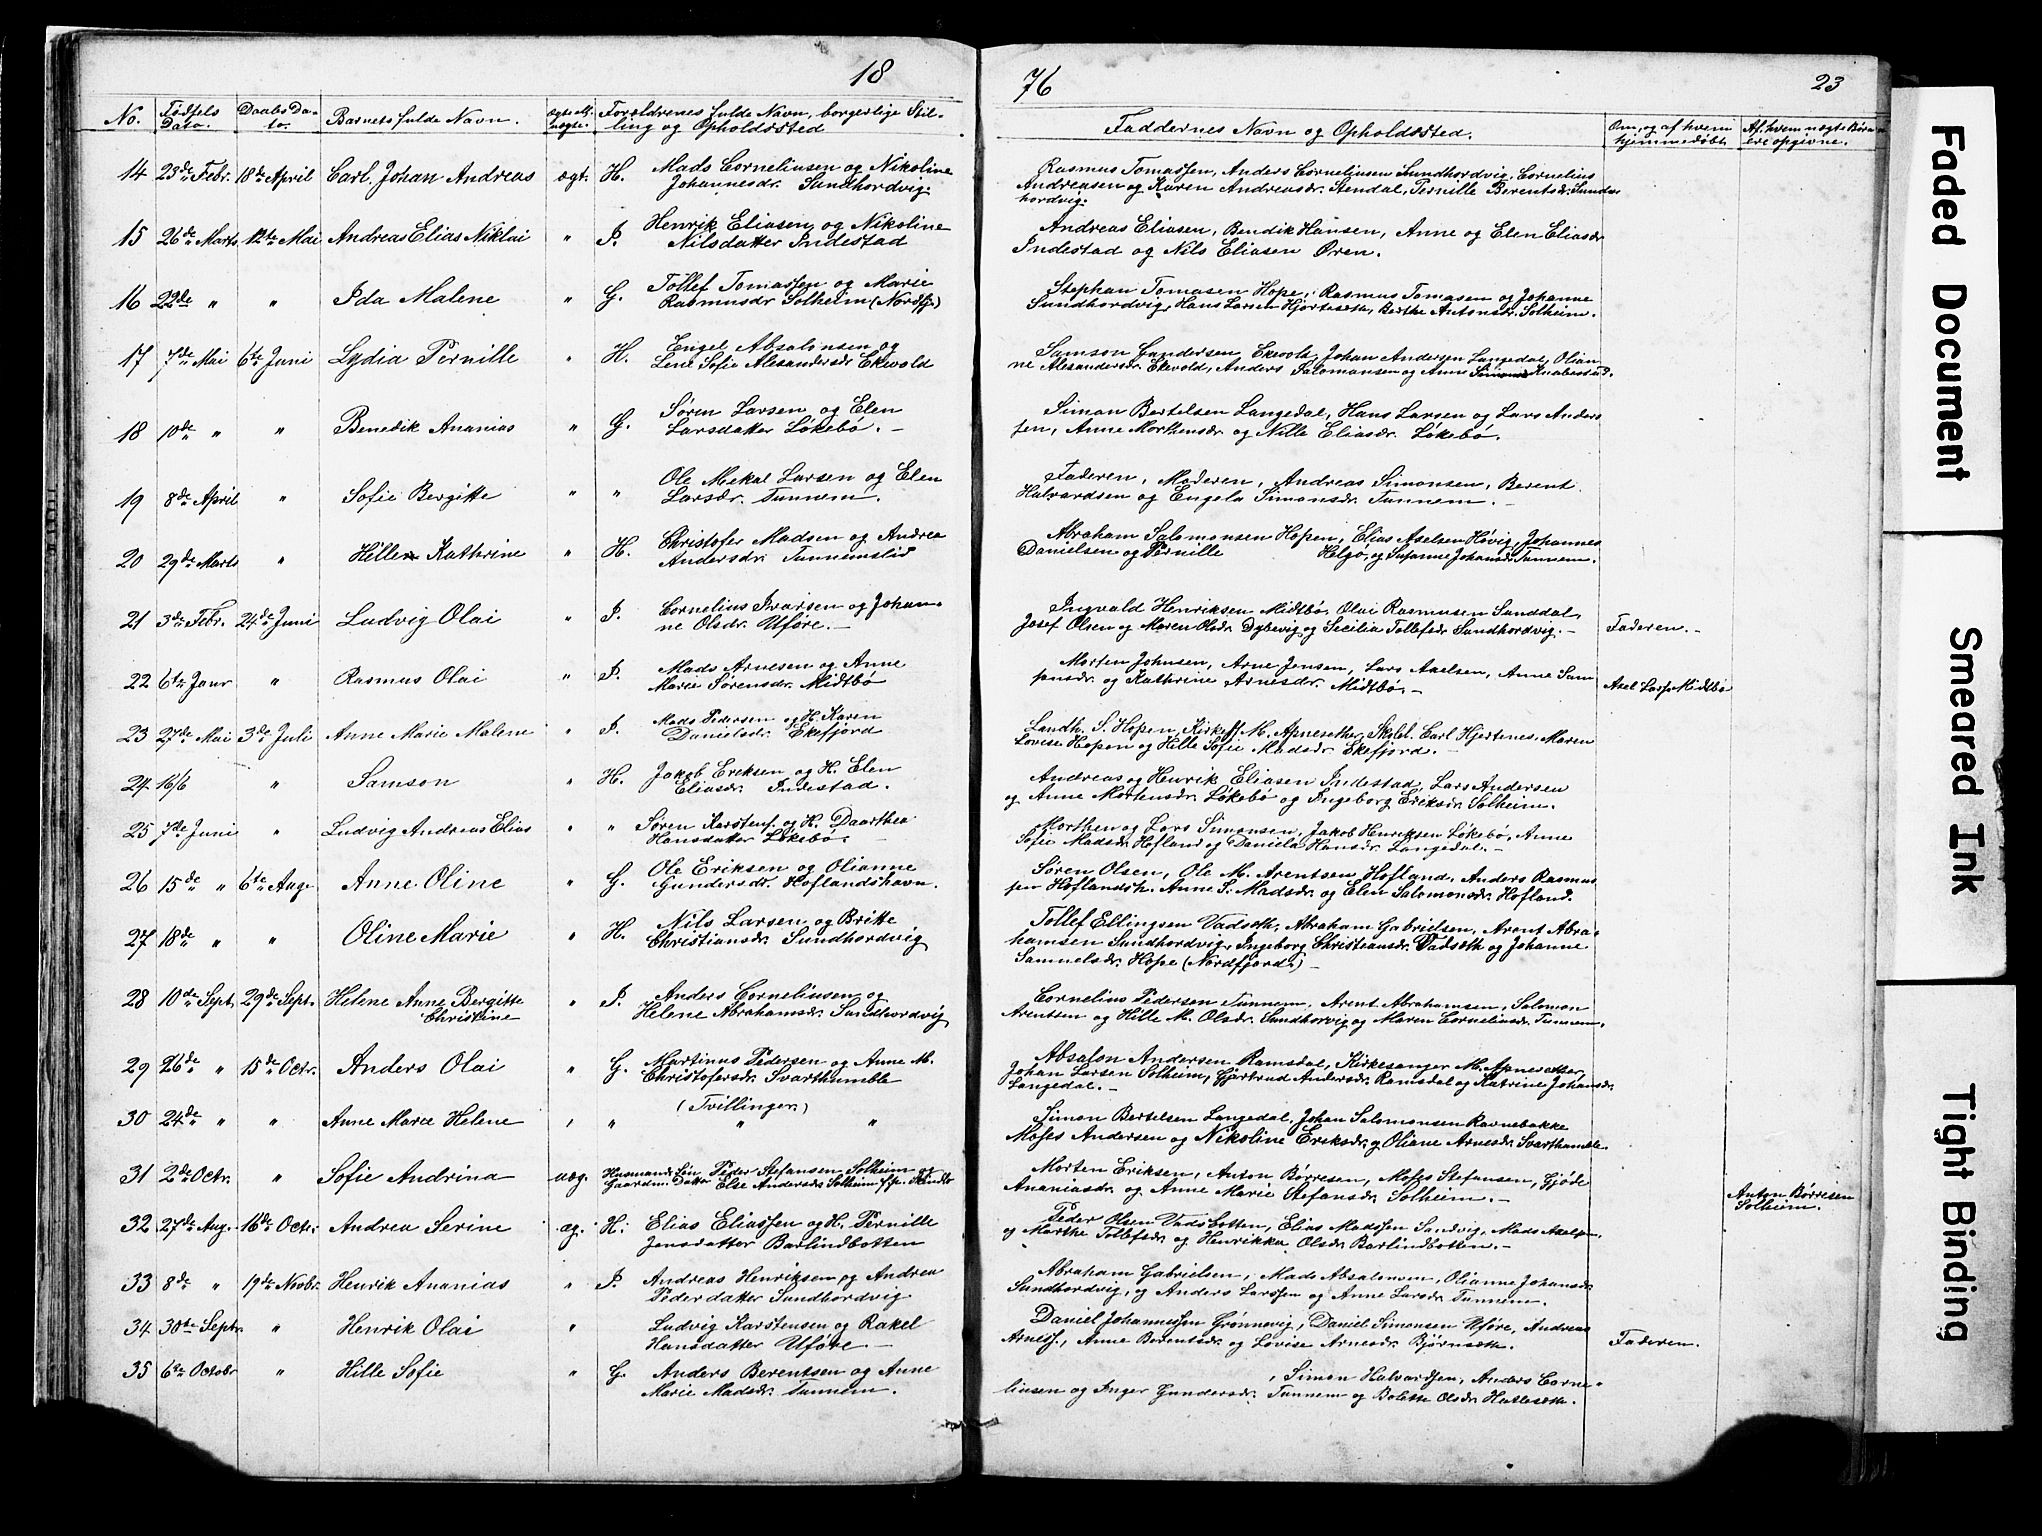 18
76
23
No. Fødsels Dato. Daabs Dato. Barnets fulde Navn. Ægte ell. uægte. Forældrenes fulde Navn, borgerlige Stilling og Opholdssted
Faddernes Navn og Opholdssted. Om, og af hvem hjemmedøbt Af hvem uægte Børn ere opgivne.
14 23de Febr. 18de April Carl Johan Andreas ægt. H. Mads Corneliusen og Nikoline
Johannesdr. Sundhordvig.
Rasmus Tomassen, Anders Corneliusen Sundhordvig, Cornelius
Andreasen og Karen Andreasdr. Stendal, Pernille Berentsdr. Sund-
hordvig.
15 26de Marts 12te Mai Andreas Elias Niklai " I. Henrik Eliasen og Nikoline
Nilsdatter Indestad
Andreas Eliasen, Bendik Hansen, Anne og Elen Eliasdr
Indestad og Nils Eliasen Øren.
16 22de " " Ida Malene " G. Tollef Tomassen og Marie
Rasmusdr Solheim (Nordfj.)
Stephan Tomasen Hope, Rasmus Tomasen og Johanne
Sundhordvig, Hans Larsen Hjorteseth, Berthe Antonsdr. Solheim.
17 7de Mai 6te Juni Lydia Pernille " H. Engel Absalonsen og
Lene Sofie Alexandersdr Ekevold
Samson Gundersen Ekevold, Johan Andersen Langedal, Olian-
ne Alexandersdr. Ekevold, Anders Salomonsen og Anne Knabestad.
18 10de " " Benedik Ananias " G. Søren Larsen og Elen
Larsdatter Løkebø. -
Simon Bertelsen Langedal, Hans Larsen og Lars Anders
sen, Anne Morthensdr. og Nille Eliasdr. Løkebø.
19 8de April " Sofie Bergitte " " Ole Mekal Larsen og Elen
Larsdr. Tunnem.
Faderen, Moderen, Andreas Simonsen, Berent
Halvardsen og Engela Simonsdr. Tunnem.
20 29de Marts " Hille Kathrine " H. Christofer Madsen og Andrea
Andersdr. Tunnemslid
Abraham Salomonsen Hopen, Elias Axelsen Høvig, Johannes
Danielsen og Pernille Helgø, og Susanne Johansdr Tunnem.
21 3de Febr. 24de Juni Ludvig Olai " I. Cornelius Ivarsen og Johan-
ne Olsdr. Uføre. -
Ingvald Henriksen Midtbø, Olai Rasmusen Sanddal,
Josef Olsen og Maren Olsdr. Dyevig og Secilia Tollefsdr Sundhordvig. - Faderen. -
22 6te Janr " Rasmus Olai " I. Mads Arnesen og Anne
Marie Sørensdr. Midtbø
Morten Johnsen, Arne Jensen, Lars Axelsen, Anne Sam-
sonsdr. og Kathrine Arnesdr. Midtbø. - Axel Lars. Midtbø
23 27de Mai 3de Juli Anne Marie Malene " I. Mads Pedersen og H. Karen
Danielsdr. Ekefjord
Landh. S. Hopen, Kirkes. M. Apneseth, Skolel. Carl Hjertenes, Maren
Lovise Hopen og Hille Sofie Madsdr. Ekefjord. -
24 16/6 " Samson " H. Jakob Eriksen og H. Elen
Eliasdr. Indestad.
Andreas og Henrik Eliasen Indestad, Lars Andersen
og Anne Mortensdr. Løkebø og Ingeborg Eriksdr. Solheim.
25 7de Juni " Ludvig Andreas Elias " " Søren Karstens. og H. Daarthea
Hansdatter Løkebø.
Morthen og Lars Simonsen, Jakob Henriksen Løkebø, Anne
Sofie Madsdr. Hofland og Daniela Hansdr. Langedal. -
26 15de " 6te Aug. Anne Oline " G. Ole Eriksen og Olianne
Gundersdr. Hoflandshavn.
Søren Olsen, Ole M. Arentsen Hofland, Anders Rasmus
sen Hoflandsh. Anne S. Madsdr. og Elen Salomonsdr. Hofland.
27 18de " " Oline Marie " H. Nils Larsen og Britte
Christiansdr. Sundhordvig
Tollef Ellingsen Vadseth, Abraham Gabrielsen, Arent Abra-
hamsen Sundhordvig, Ingeborg Christiansdr. Vadseth og Johanne
Samuelsdr. Hope (Nordfjord.) -
28 10de Sept. 29de Sept. Helene Anne Bergitte
Christine " I. Anders Corneliusen og
Helene Abrahamsdr. Sundhordvig
Cornelius Pedersen Tunnem, Arent Abrahamsen, Salomon
Arentsen og Hille M. Olsdr. Sundhorvig og Maren Corneliusdr. Tunnem.
29 26de " 15de Octr. Anders Olai " G. Martinus Pedersen og Anne M.
Christofersdr. Svarthumble
Absalon Andersen Ramsdal, Kirkesanger M. Apnesether,
Johan Larsen Solheim, Gjertrud Andersdr. Ramsdal og Katrine Johansdr.
Langedal. -
(Tvillinger.)
30 24de " " Anne Marie Helene " " " "
Simon Bertelsen Langedal, Johan Salomonsen Ravnebakke
Moses Andersen og Nikoline Eriksdr. og Oliane Arnesdr. Svarthumble
31 2de Octr. " Sofie Andrina uæg. Husmands Søn Peder Stefansen Solheim og
Gaardm. Datter Else Andersdr. Solheim
Morten Eriksen, Anton Børresen, Moses Stefansen, Gjøde
Ananiasdr. og Anne Marie Stefansdr. Solheim. - Anton Børresen
Solheim.
32 27de Aug. 16de Octr. Andrea Serine æg. H. Elias Eliassen og H. Pernille
Jensdatter Barlindbotten
Peder Olsen Vadsbotten, Elias Madssen Sandvig, Mads Axels.
og Marthe Tollefsdr. og Henrikka Olsdr. Barlindbotten. -
33 8de " 19de Novbr. Henrik Ananias " I. Andreas Henriksen og Andrea
Pederdatter Sundhordvig
Abraham Gabrielsen, Mads Absalonsen, Olianne Johansdr.
Sundhordvig, og Anders Larssen og Anne Larsdr. Tunnem.
34 30te Septr. " Henrik Olai " Ludvig Karstensen og Rakel
Hansdatter Uføre -
Daniel Johannessen Grønnevig, Daniel Simonsen Uføre, Andreas
Arness., Anne Berentsdr. og Lovise Arnesdr. Bjørnseth. Faderen.
35 6te Octobr " Hille Sofie " G. Anders Berentsen og Anne
Marie Madsdr. Tunnem.
, Simon Halvardsen, Anders Corne-
liusen og Inger Gundersdr. Tunnem og Bolette Olsdr Hatleseth.
Faded Document
Smeared Ink
Tight Binding